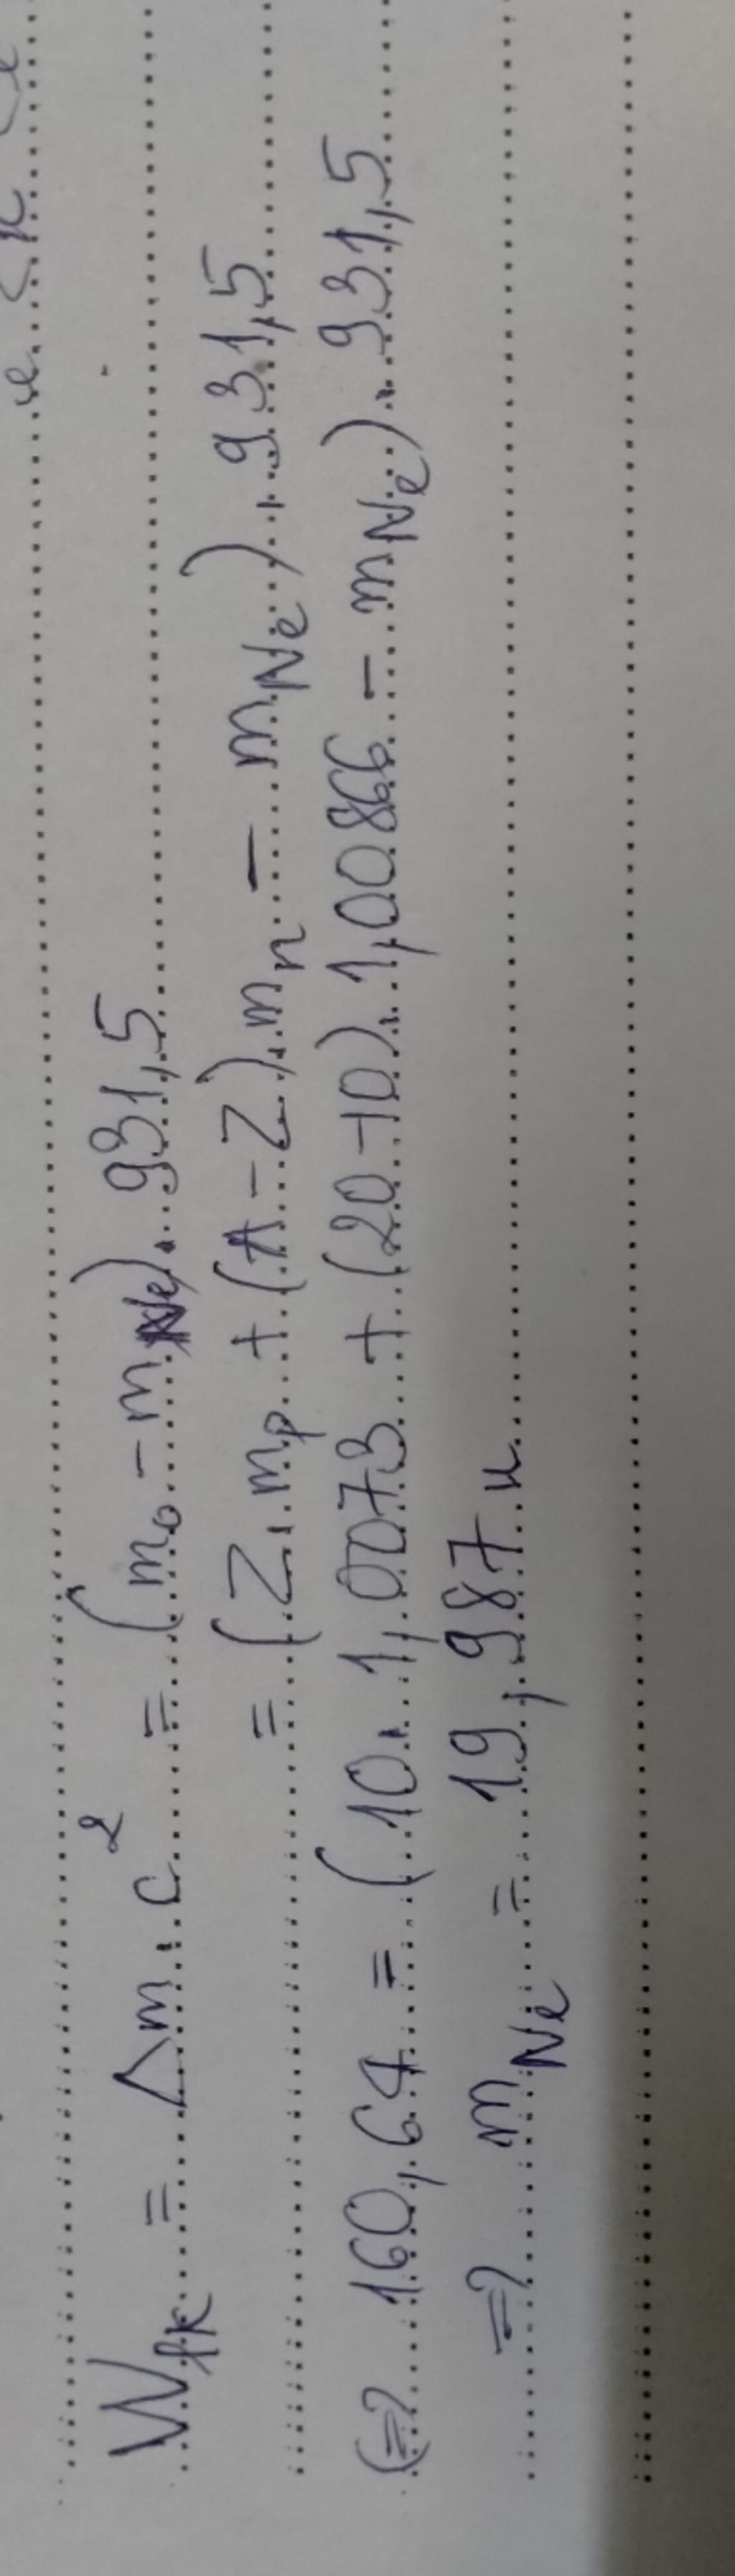 W_lk = Δm.c² = (m₀ - m_Ne). 931,5
= (Z.m_p + (A-Z).m_n - m_Ne). 931,5
(=> 160,64 = (10. 1,0073 + (20-10). 1,00866 - m_Ne). 931,5
=> m_Ne = 19,987 u